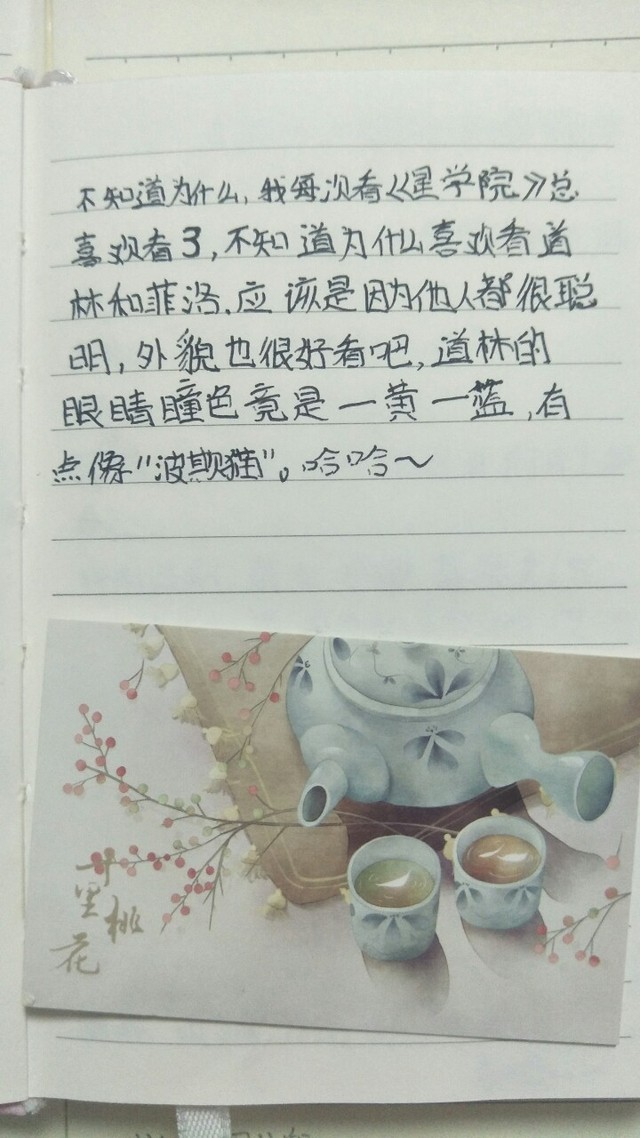 不知道为什么,我每次看《星学院》总
喜欢看3,不知道为什么喜欢看道
林和菲洛.应该是因为他人都很聪
明,外貌也很好看吧,道林的
眼睛瞳色竟是一黄一蓝,有
点像"波斯猫"。哈哈~
十里
桃
花